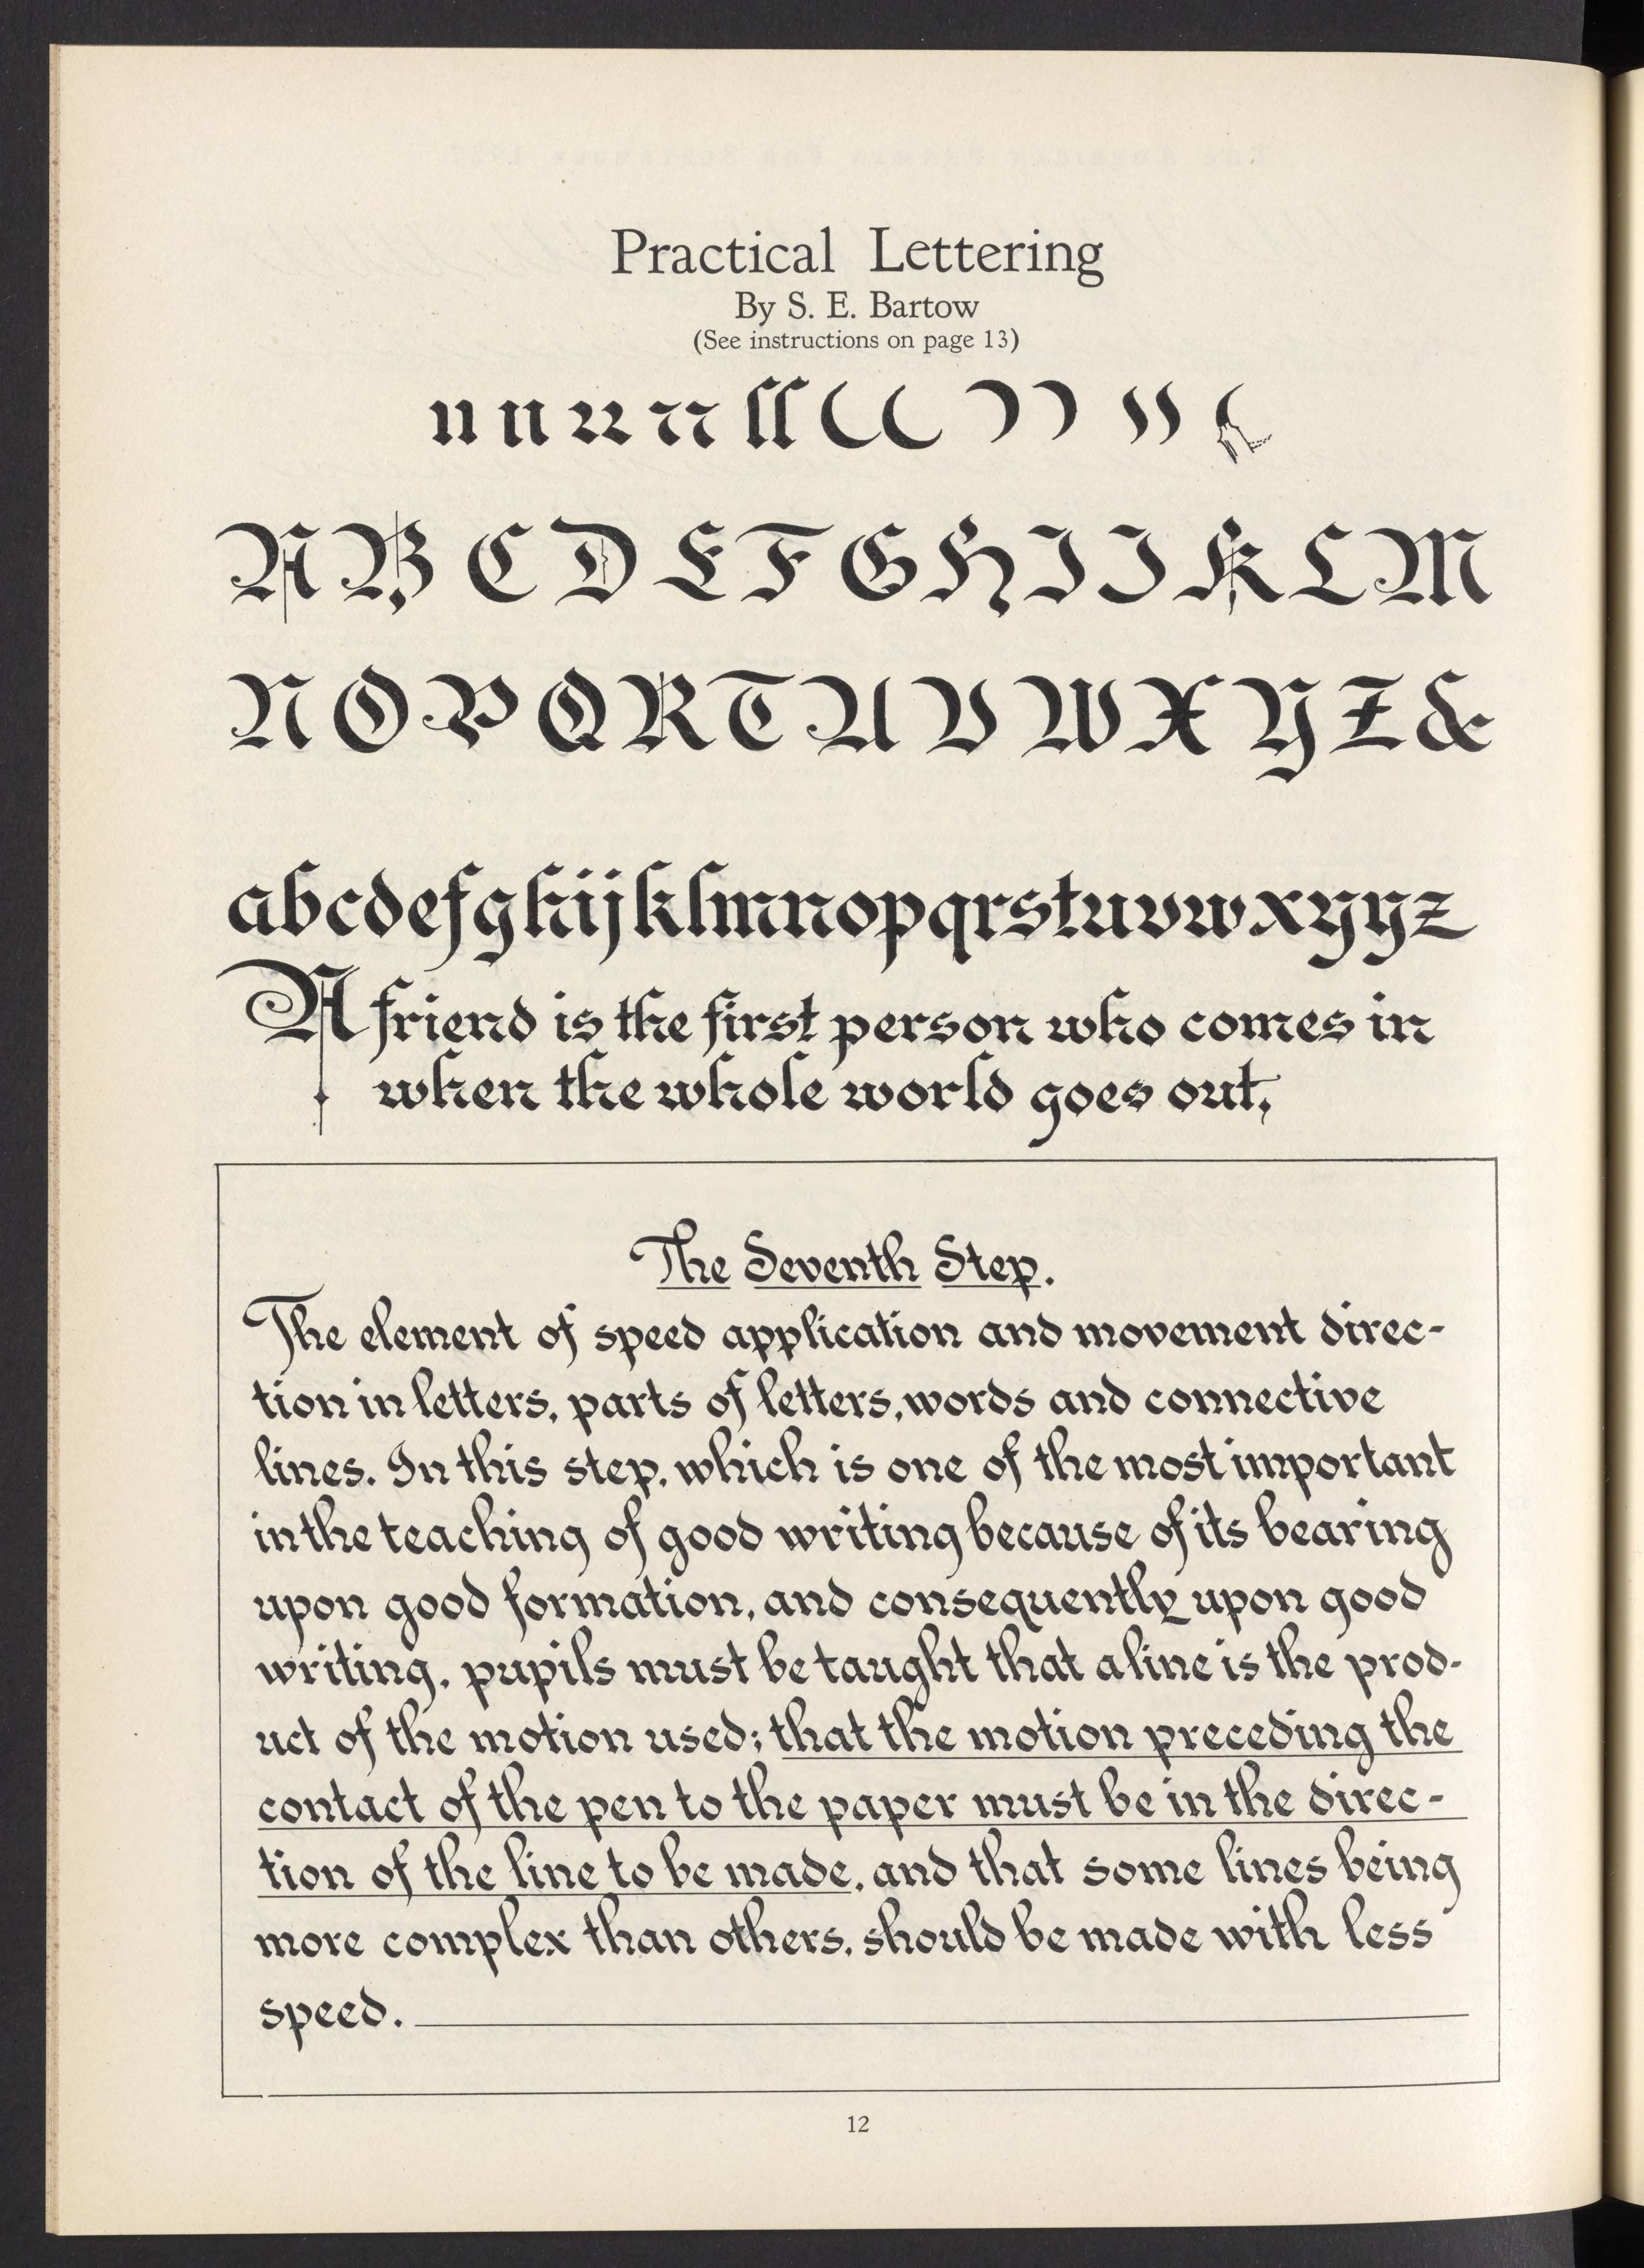 Practical Lettering
By S. E. Bartow
(See instructions on page 13)
A B C D E F G H I J K L M
N O P Q R T U V W X Y Z &
a b c d e f g h i j k l m n o p q r s t u v w x y y z
A friend is the first person who comes in
when the whole world goes out.
The Seventh Step.
The element of speed application and movement direc-
tion in letters, parts of letters, words and connective
lines. In this step, which is one of the most important
in the teaching of good writing because of its bearing
upon good formation, and consequently upon good
writing, pupils must be taught that a line is the prod-
uct of the motion used; that the motion preceding the
contact of the pen to the paper must be in the direc-
tion of the line to be made, and that some lines being
more complex than others, should be made with less
speed.
12